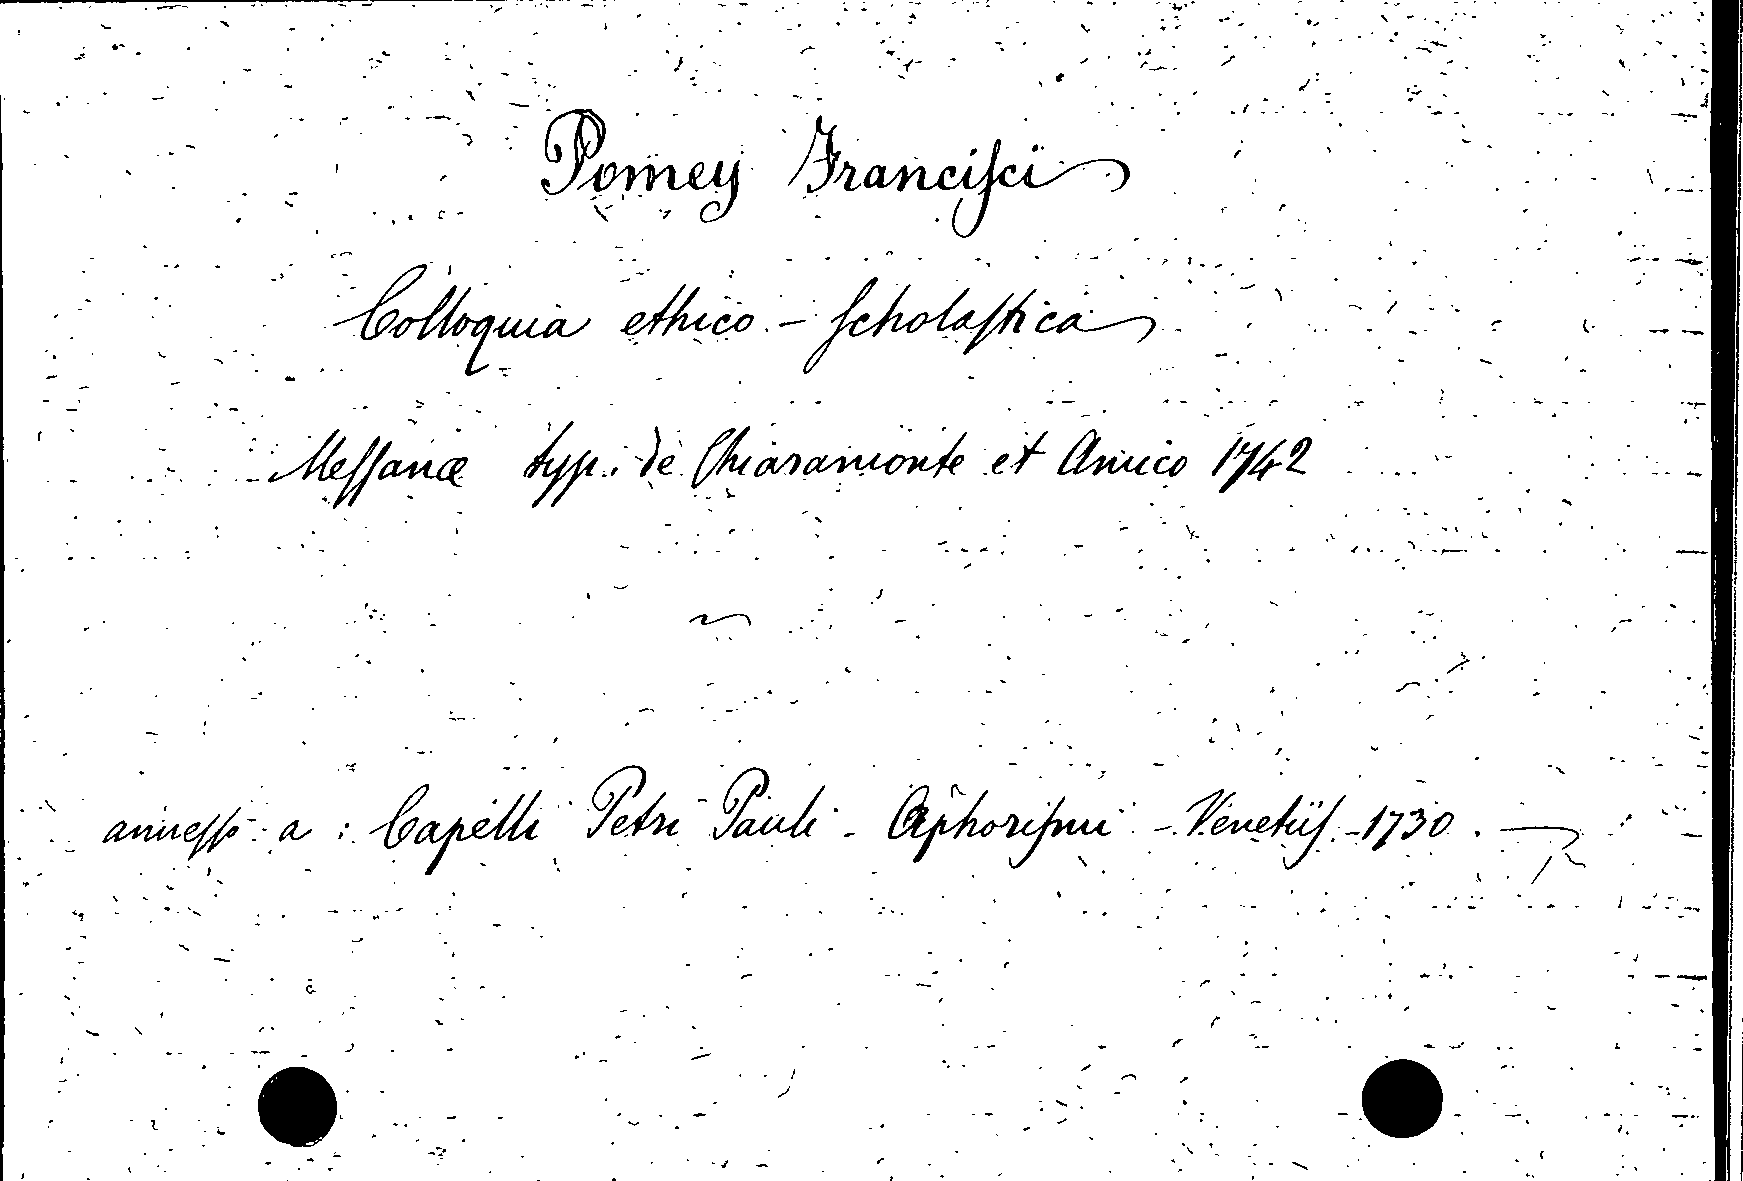 Pomey Franciſci
Colloquia ethico - ſcholaſtica
Meſſanæ typ. de Chiaramonte et Amico 1742
anneſſo a : Capelli Petri Pauli - Aphoriſmi - Venetiiſ - 1730.